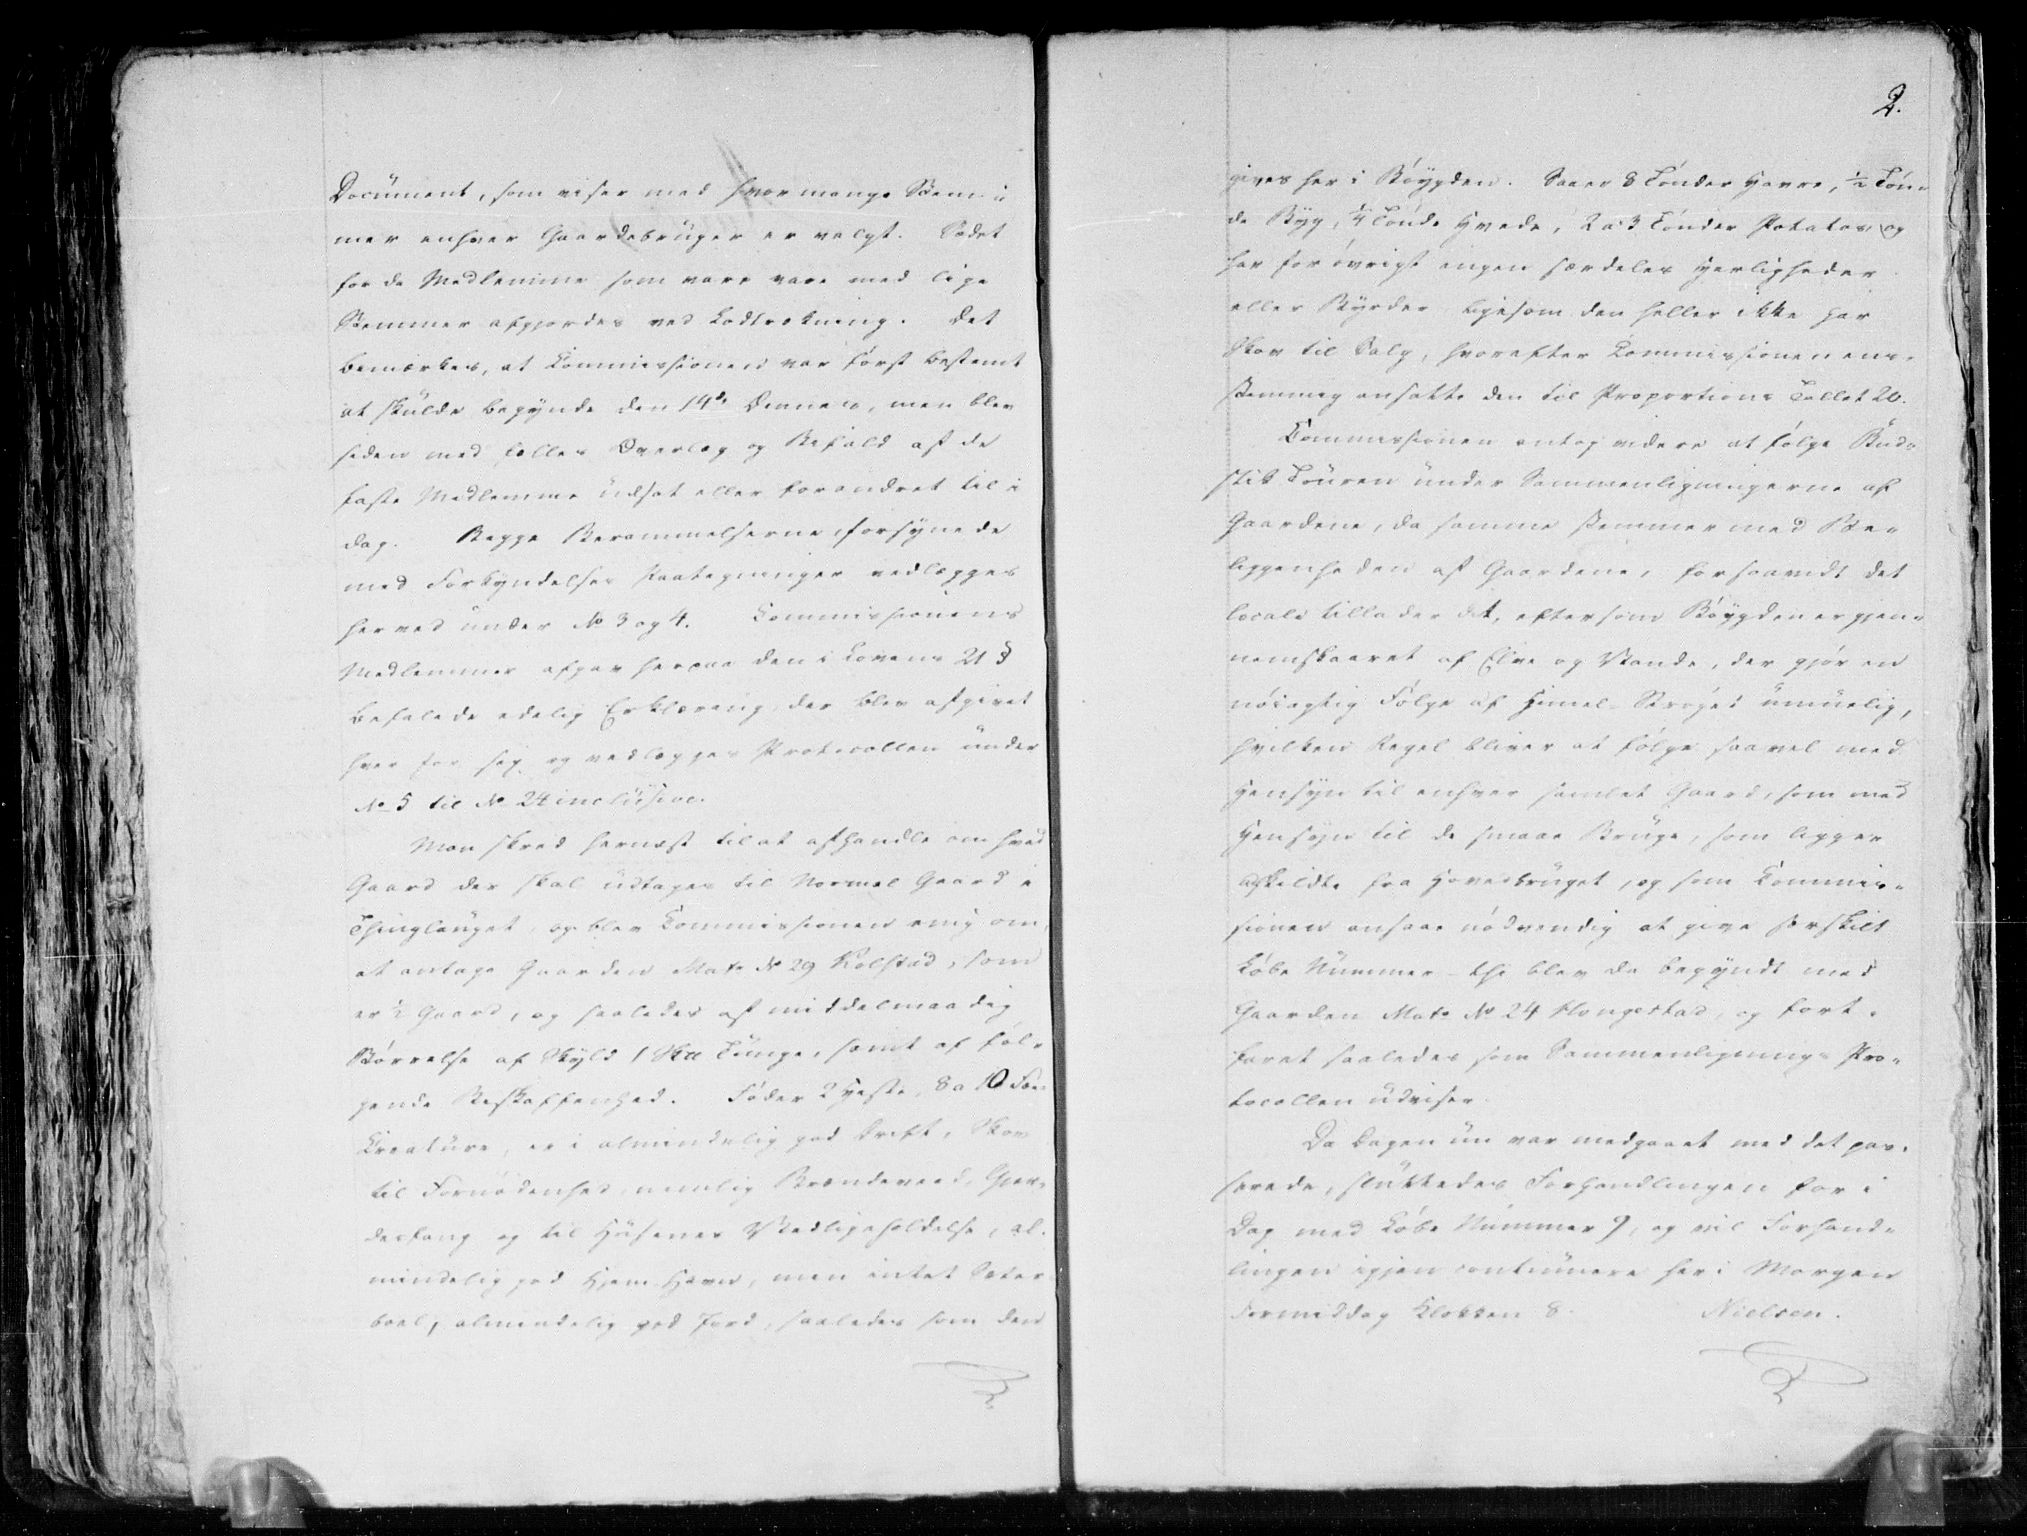 Document, som viser med hvor mange Stem-
mer enhver Gaardebruger er valgt. Sædet
for de Medlemme som vare vare med lige
Stemmer afgjordes ved Lodtrækning. Det
bemærkes, at Commissionen var først bestemt
at skulde begynde den 14de Dennes, men blev
siden med fælles Overlæg og Bifald af de
faste Medlemme udsat eller forandret til i
dag. Begge Berammelserne forsynede
med Forkyndelses Paategninger vedlægges
herved under No 3 og 4. Commissionens
Medlemmer afgav herpaa den i Lovens 21 §
befalede edelig Erklæring, der blev afgivet
hver for sig og vedlægges Protocollen under
No 5 til No 24 inclusive.
Man skred hernæst til at afhandle om hvad
Gaard der skal udtages til Normal Gaard i
Thinglauget, og blev Commissionen enig om,
at antage Gaarden Mat: No 29 Kolstad, som
er ½ Gaard, og saaledes af middelmaadig
Størrelse af Skyld 1 Sk℔ Tunge, samt af føl-
gende Beskaffenhed. Føder 2 Heste, 8 a 10 Fæ-
Creature, er i almindelig god Drift, Skov
til Fornødenhed, nemlig Brændeveed, Gjær-
desfang og til Husenes Vedligeholdelse, al-
mindelig god Hjem-Havn, men intet Sæter-
boel, almindelig god Jord, saaledes som den
2.
gives her i Bøygden. Saaer 8 Tønder Havre, ½ Tøn-
de Byg, ¼ Tønde Hvede, 2 a 3 Tønder Potatos og
har for øvrigt ingen særdeles Herligheder
eller Byrder ligesom den heller ikke har
Skov til Salg, hvorefter Commissionen eens-
stemmig ansatte den til Proportions Tallet 20.
Commissionen antog videre at følge Bud-
stik Touren under Sammenligningerne af
Gaardene, da samme stemmer med Be-
liggenheden af Gaardene, forsaavidt det
locale tillader det, eftersom Bøygden er gjen-
nemskaaret af Elve og Vande, der gjør en
nøiagtig Følge af Himmel-Strøget umuelig,
hvilken Regel bliver at følge saavel med
Hensyn til enhver samlet Gaard, som med
Hensyn til de smaae Bruge, som ligger
adskildte fra Hovedbruget, og som Commis-
sionen ansaae nødvendig at give særskilt
Løbe Nummer – thi blev da begyndt med
Gaarden Mat: No 24 Hongestad, og fort-
faret saaledes som Sammenlignings Pro-
tocollen udviser.
Da Dagen nu var medgaaet med det pas-
serede, sluttedes Forhandlingen for i
Dag med Løbe Nummer 9, og vil Forhand-
lingen igjen continuere her i Morgen
Formiddag Klokken 8. Nielsen.